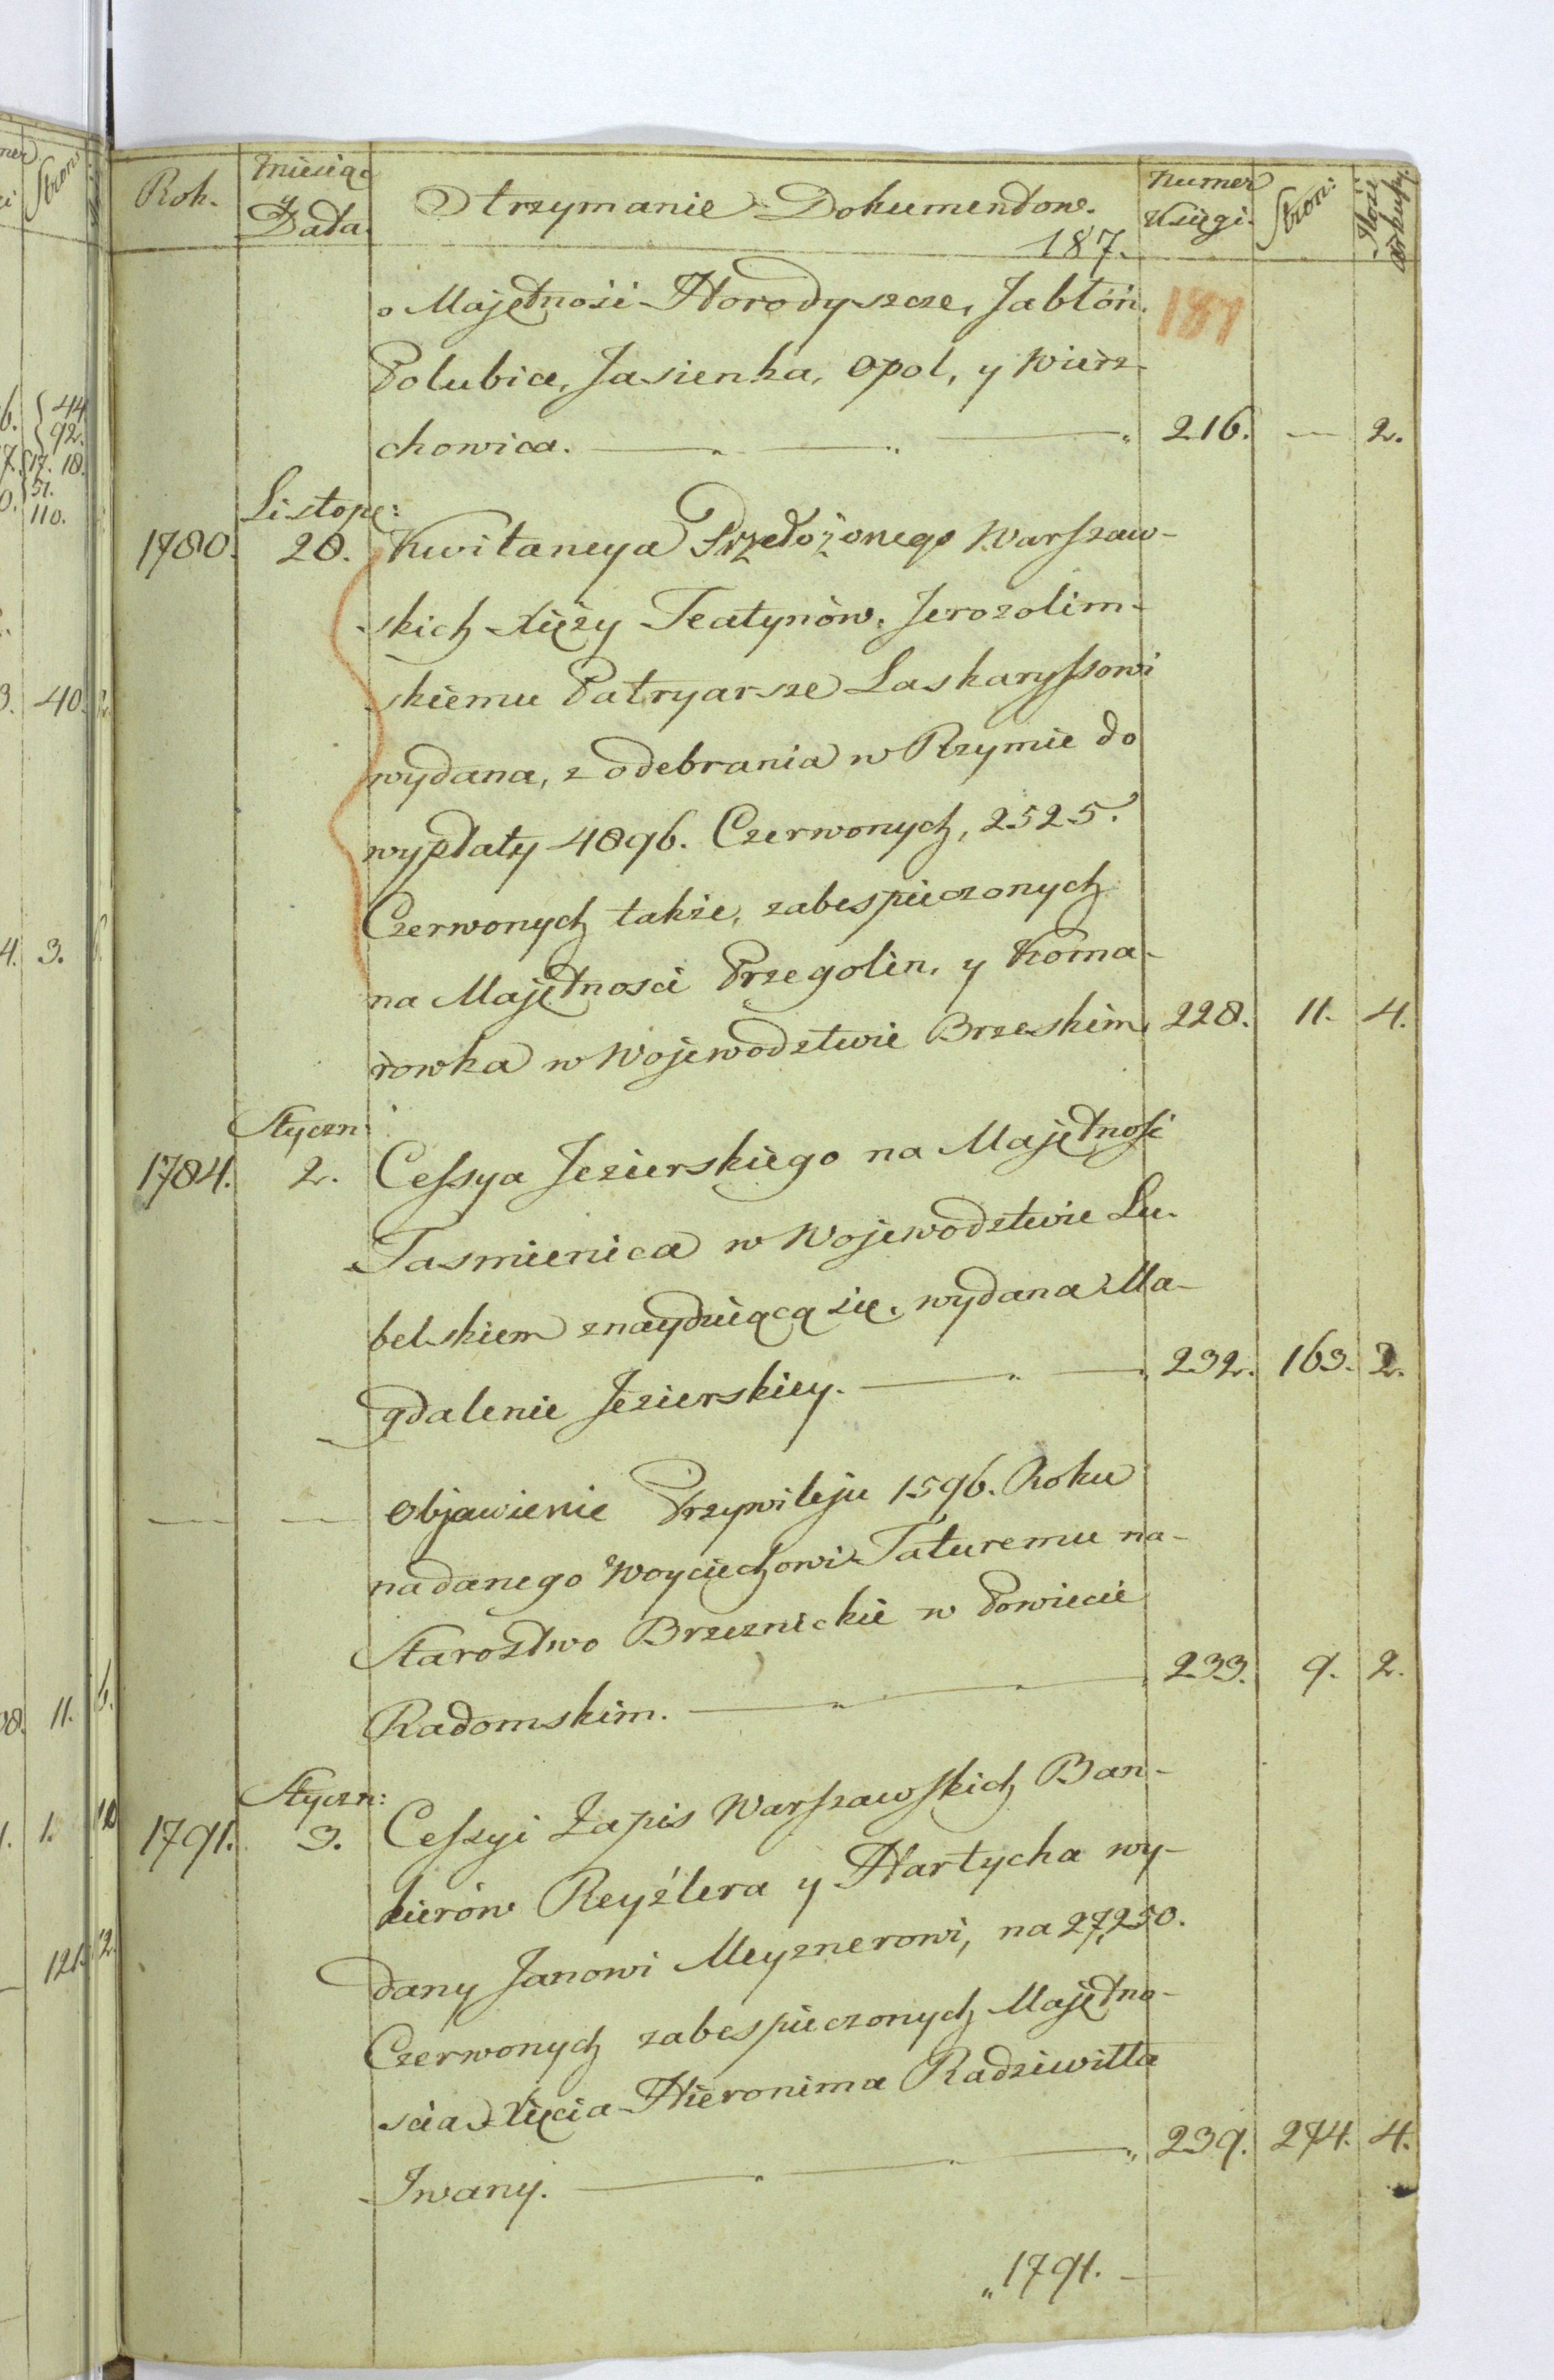 Rok. Miesiąc y Data. Otrzymanie Dokumentow. Numer Księgi. Stron: Ilość arkuszy.
187.
187
o Majętności Horodyszcze, Jabłoń,
Polubice, Jasienka, Opol, y Wierz-
chowica. 216. — 2.
Listopa:
1780. 28. Kwitancya Przełożonego Warszaw-
skich Xięży Teatynów, Jerozolim-
skiemu Patryarsze Laskaryssowi
wydana, z odebrania w Rzymie do
wypłaty 4896. Czerwonych, 2525.
Czerwonych także, zabespieczonych
na Majętnosci Przegolin, y Koma-
rowka w Wojewodztwie Brzeskim, 228. 11. 4.
Styczn:
1784. 2. Cessya Jezierskiego na Majętność
Tasmienica w Wojewodztwie Lu-
belskiem znayduiącą się, wydana Ma-
gdalenie Jezierskiey. 232. 163. 2.
— — Objawienie Przywileju 1596. Roku
nadanego Woyciechowi Taturemu na
Starostwo Brzeznickie w Powiecie
Radomskim. 233. 9. 2.
Styczn:
1791. 3. Cessyi Zapis Warszawskich Ban-
kierów Reyźlera y Hartycha wy-
dany Janowi Meyznerowi, na 27,250.
Czerwonych zabespieczonych Majętno-
scia Xięcia Hieronima Radziwiłła
Iwany. 239. 274. 4.
„1791.
44
92.
17. 18.
51.
110.
40.
4. 3.
11. 6.
1.
121. 2.